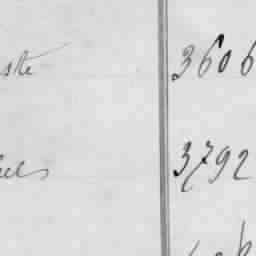 ste 3606
els 3792